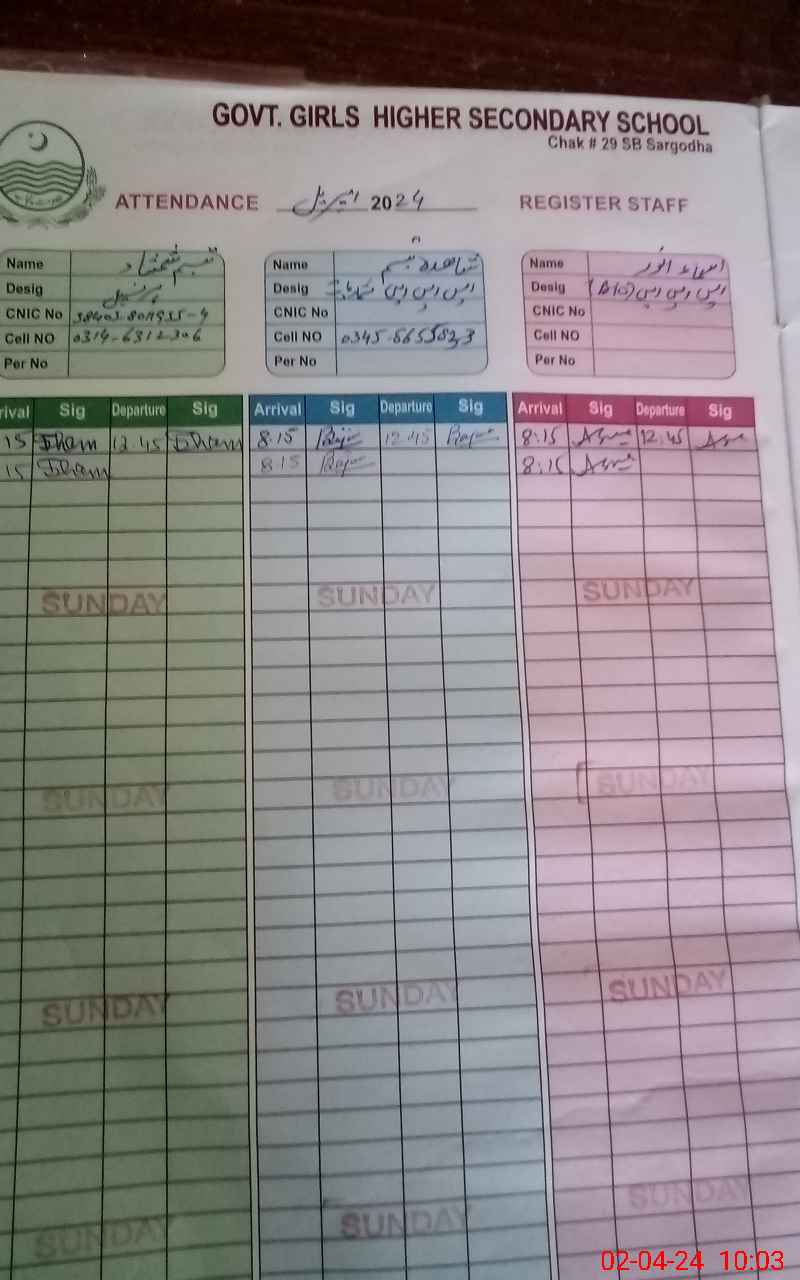 GOVT. GIRLS HIGHER SECONDARY SCHOOL
Chak # 29 SB Sargodha
ATTENDANCE اپریل 2024 REGISTER STAFF
Name شمشاد Name شاهدہ تبسم Name اسماء انور
Desig پرنسپل Desig ایس ایس ایس Desig ایس ایس ایس (Bio)
CNIC No CNIC No CNIC No
Cell NO 0314-6312306 Cell NO 0345-8655823 Cell NO
Per No Per No Per No
rival Sig Departure Sig Arrival Sig Departure Sig Arrival Sig Departure Sig
15 12.45 8:15 12.45 8:15 12.45
15 8:15 8:15
SUNDAY SUNDAY SUNDAY
SUNDAY SUNDAY SUNDAY
SUNDAY SUNDAY SUNDAY
SUNDAY SUNDAY SUNDAY
02-04-24 10:03